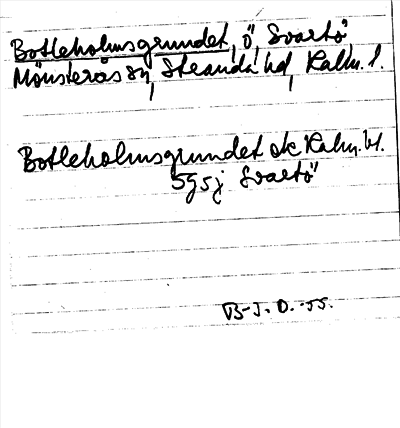 Bottleholmsgrundet, ö, Svartö,
Mönsterås sn, Stranda hd, Kalm. l.
Bottleholmsgrundet ek Kalm. bl.
5g5j Svartö
B-J. O. -55.